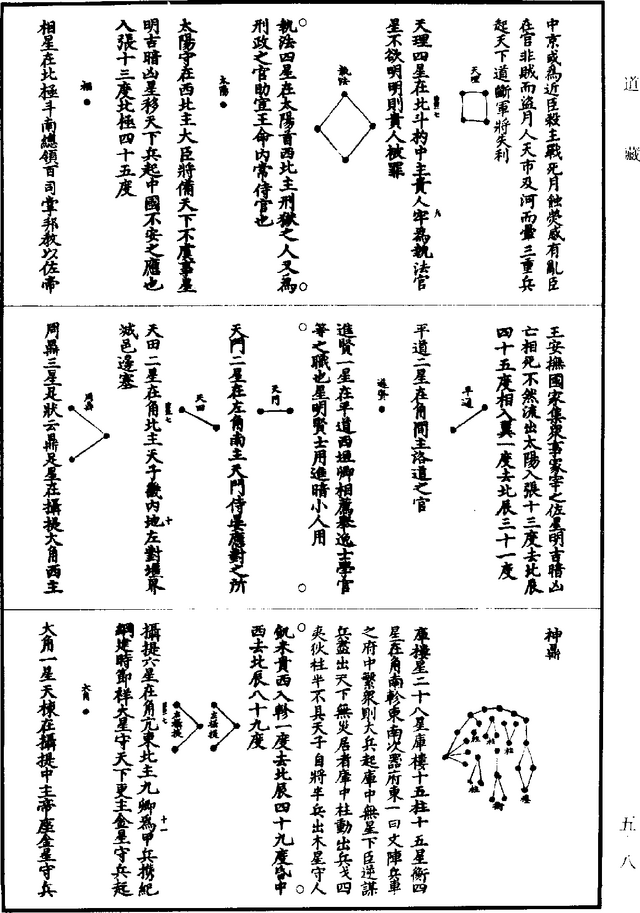 道藏
中京或為近臣殺主戰死月蝕熒惑有亂臣
在官非賊而盜月入天市及河而暈三重兵
起天下道斷軍將失利
天理
天理四星在北斗杓中主貴人牢為執法官
星不欲明明則貴人被罪
執法
執法四星在太陽首西北主刑獄之人又為
刑政之官助宣王命內常侍官也
太陽
太陽守在西北主大臣將備天下不虞事星
明吉暗凶星移天下兵起中國不安之應也
入張十三度北極四十五度
相
相星在北極斗南總領百司掌邦教以佐帝
王安撫國家集眾事冢宰之佐星明吉暗凶
亡相死不然流出太陽入張十三度去北辰
四十五度相入翼一度去北辰三十一度
平道
平道二星在角間主洛道之官
進賢
進賢一星在平道西垣卿相薦舉逸士學官
等之職也星明賢士用進暗小人用
天門
天門二星在左角南主天門侍晏應對之所
天田
天田二星在角北主天子畿內地左對壃界
城邑邊塞
周鼎
周鼎三星足狀云鼎足星在攝提大角西主
神鼎
樓
柱
柱
柱
衡
庫樓星二十八星庫樓十五柱十五星衡四
星在角南軫東南次器府東一曰文陣兵車
之府中繁眾則大兵起庫中無星下臣逆謀
兵盡出天下無災居者庫中柱動出兵戈四
夾伙柱半不具天子自將半兵出木星守人
飢米貴西入軫一度去北辰四十九度昏中
西去北辰八十九度
右攝提
左攝提
攝提六星在角亢東北主九卿為甲兵攜紀
綱建時節祥火星守天下更主金星守兵起
大角
大角一星天棟在攝提中主帝座金星守兵
五·八